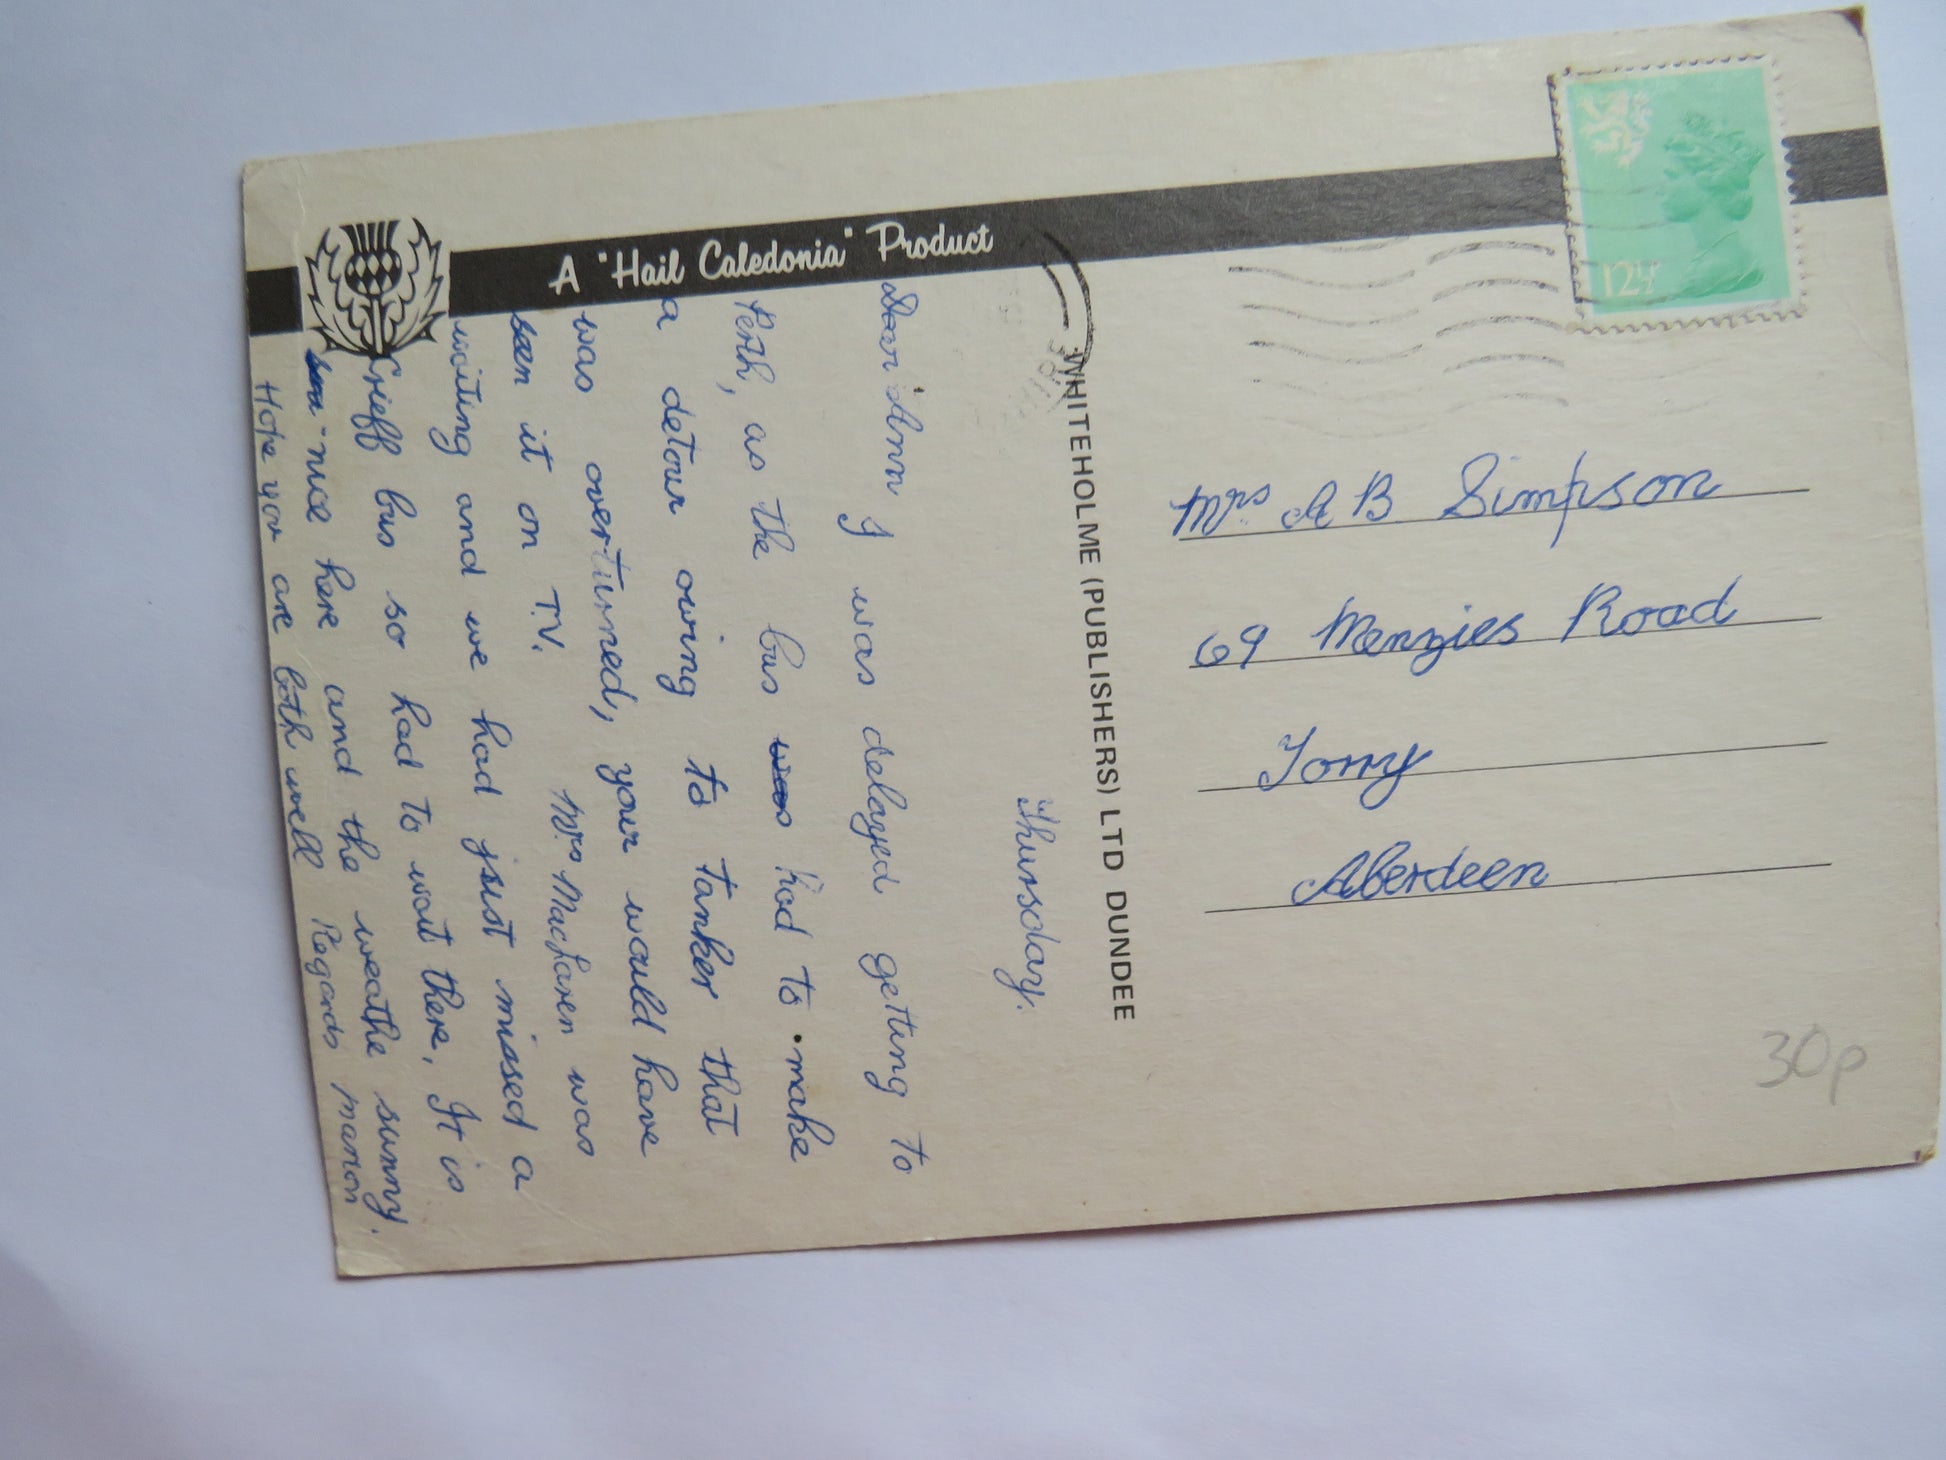 A "Hail Caledonia" Product
Thursday.
Dear Ann I was delayed getting to
Perth, as the bus was had to make
a detour owing to tanker that
was overturned, your would have
seen it on T.V. Mrs MacLaren was
waiting and we had just missed a
Crieff bus so had to wait there. It is
nice here and the weathe sunny.
Hope you are both well Regards marion
WHITEHOLME (PUBLISHERS) LTD DUNDEE
12½P
Mrs A B Simpson
69 Menzies Road
Torry
Aberdeen
30p